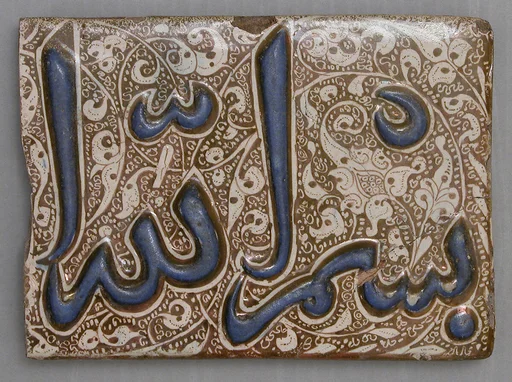 بسم الله